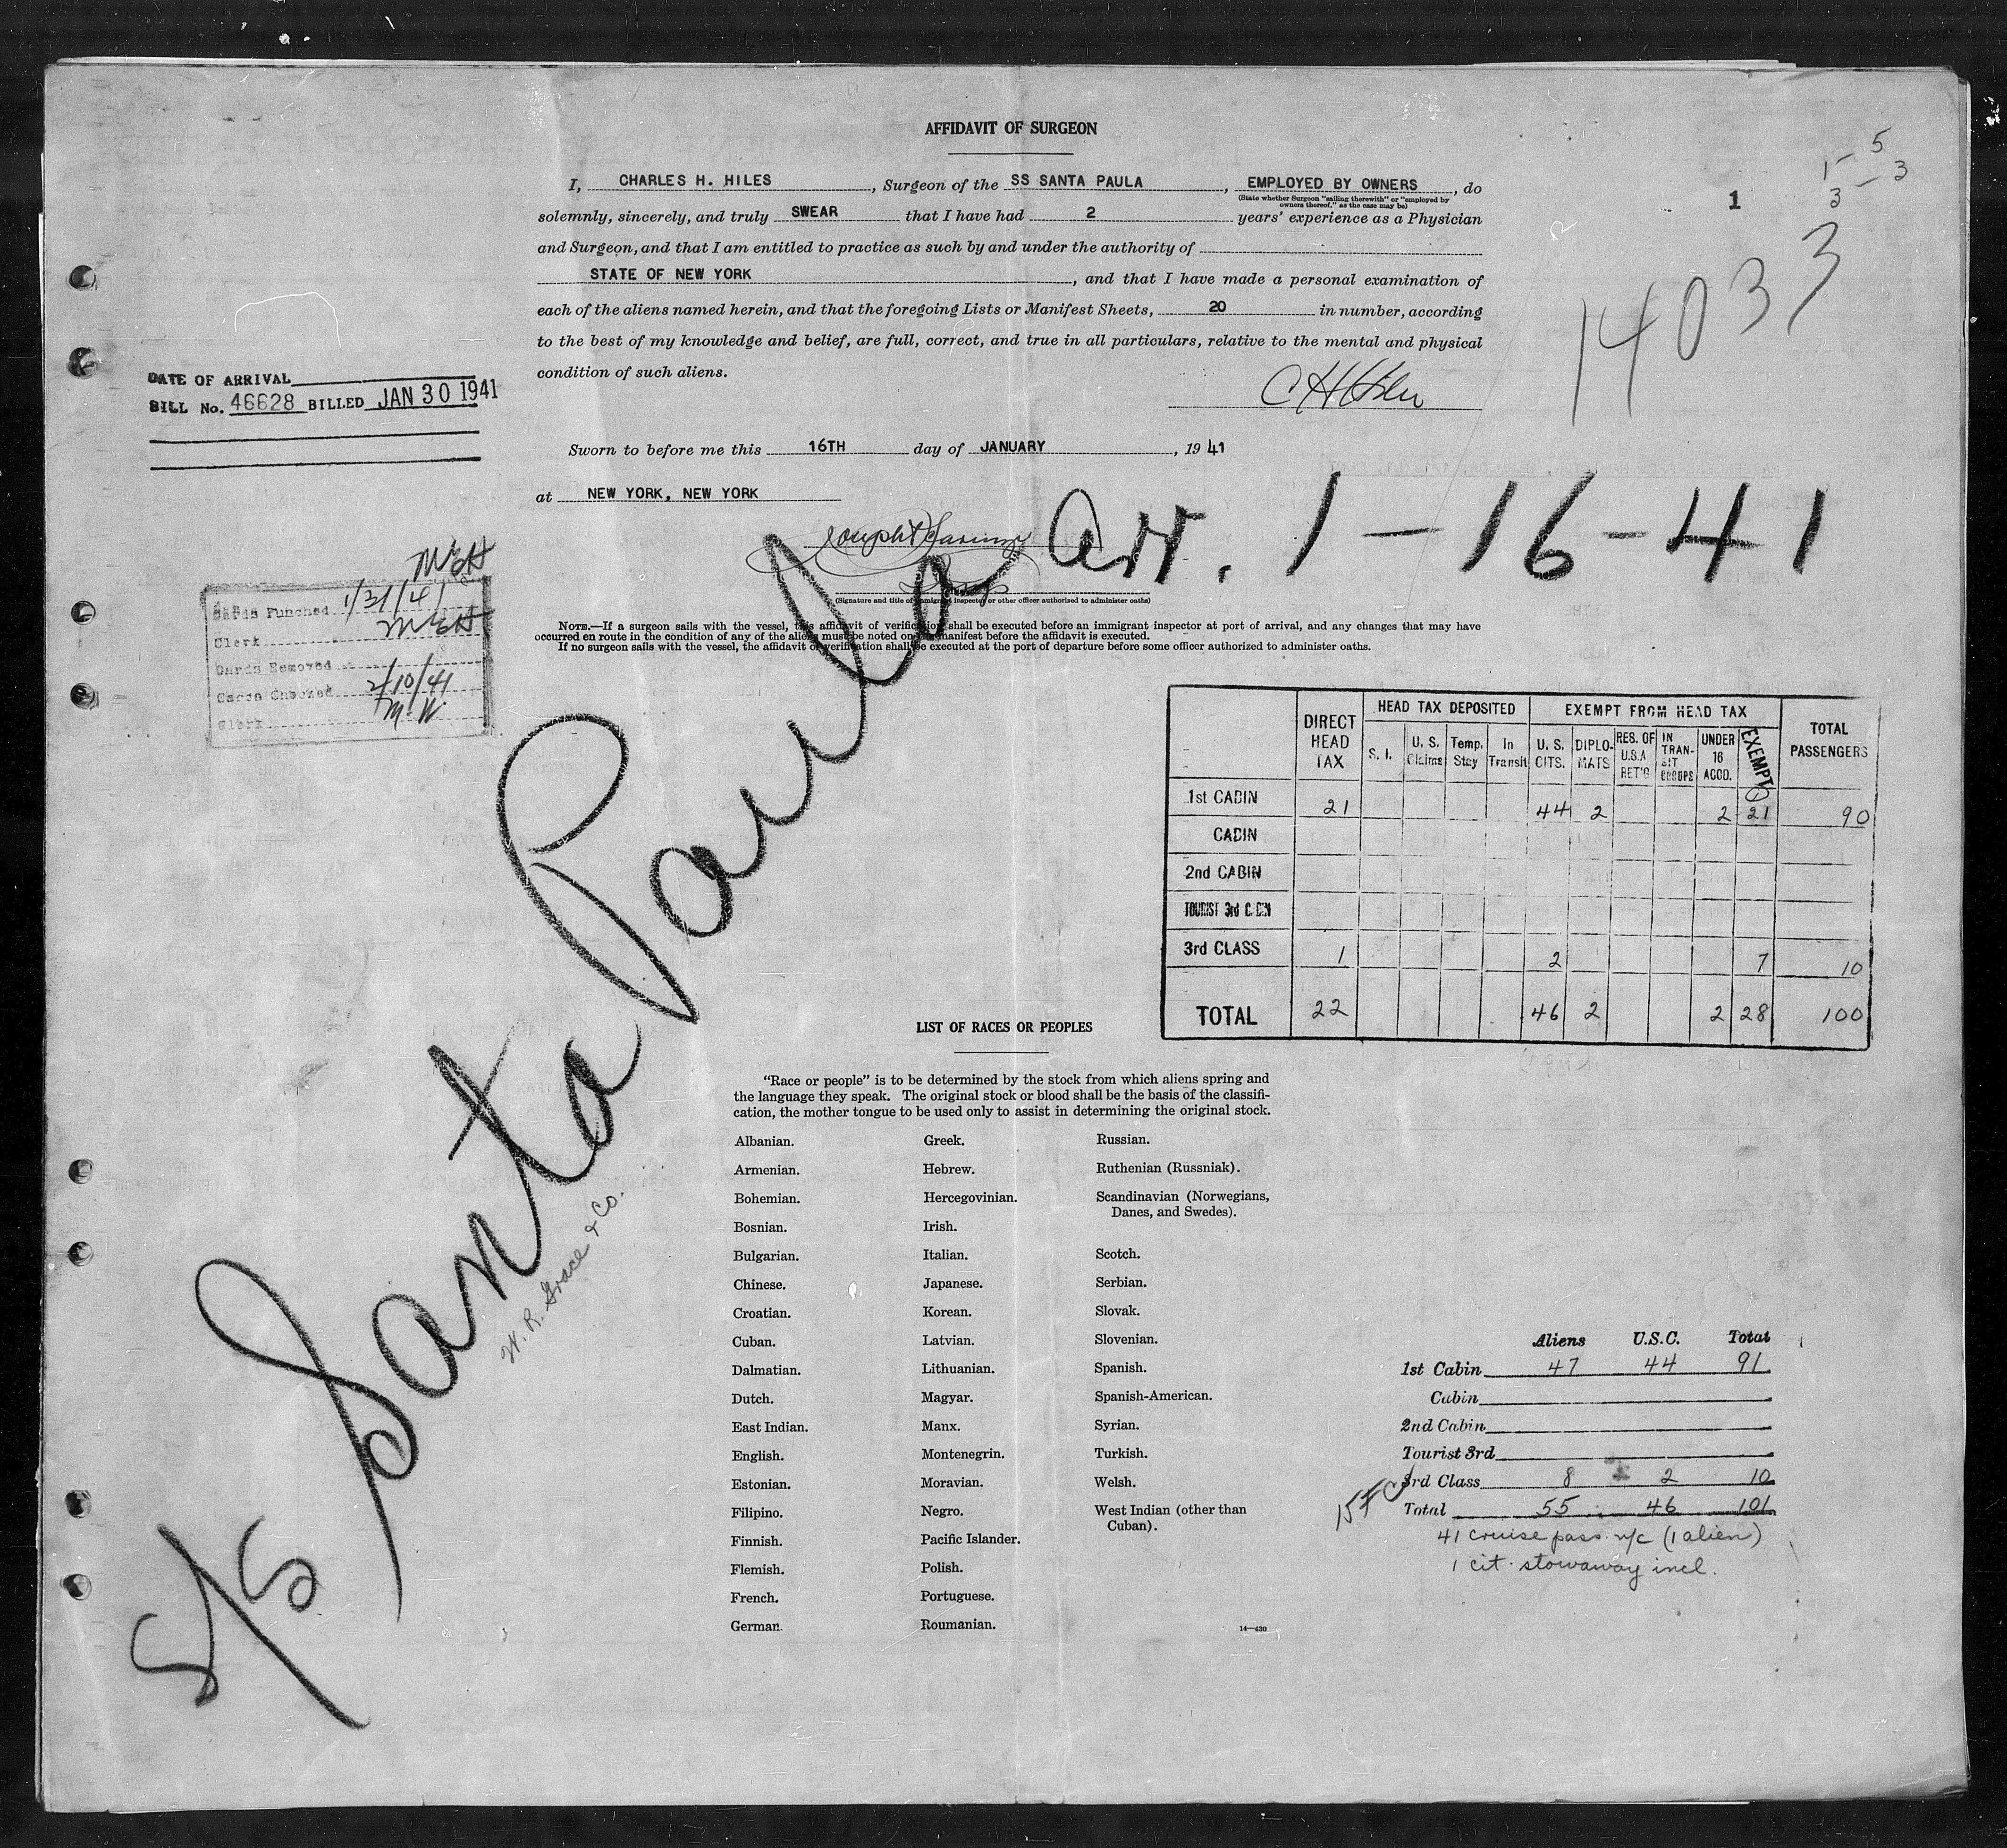 AFFIDAVIT OF SURGEON
I, CHARLES H. HILES, Surgeon of the SS SANTA PAULA, EMPLOYED BY OWNERS, do
(State whether Surgeon "sailing therewith" or "employed by
owners thereof," as the case may be)
solemnly, sincerely, and truly SWEAR that I have had 2 years' experience as a Physician
and Surgeon, and that I am entitled to practice as such by and under the authority of
STATE OF NEW YORK, and that I have made a personal examination of
each of the aliens named herein, and that the foregoing Lists or Manifest Sheets, 20 in number, according
to the best of my knowledge and belief, are full, correct, and true in all particulars, relative to the mental and physical
condition of such aliens.
C H Hiles
5
1 - 3
3 -
1
14033
DATE OF ARRIVAL
BILL No. 46628 BILLED JAN 30 1941
Sworn to before me this 16TH day of JANUARY, 1941
at NEW YORK, NEW YORK
Arr. 1-16-41
(Signature and title of immigrant inspector or other officer authorized to administer oaths)
NOTE.—If a surgeon sails with the vessel, this affidavit of verification shall be executed before an immigrant inspector at port of arrival, and any changes that may have
occurred en route in the condition of any of the aliens must be noted on the manifest before the affidavit is executed.
If no surgeon sails with the vessel, the affidavit of verification shall be executed at the port of departure before some officer authorized to administer oaths.
MEH
Cards Punched 1/31/41
Clerk MEH
Cards Removed
Cards Checked 2/10/41
Clerk M.W.
S/S Santa Paula
W. R. Grace & Co.
DIRECT HEAD TAX | HEAD TAX DEPOSITED | EXEMPT FROM HEAD TAX | TOTAL PASSENGERS
S. I. | U. S. Claims | Temp. Stay | In Transit | U. S. CITS. | DIPLOMATS | RES. OF U.S.A RET'G | IN TRANSIT GROUPS | UNDER 16 ACCD. | EXEMPT
1st CABIN 21 44 2 2 21 90
CABIN
2nd CABIN
TOURIST 3rd CABIN
3rd CLASS 1 2 7 10
TOTAL 22 46 2 2 28 100
LIST OF RACES OR PEOPLES
"Race or people" is to be determined by the stock from which aliens spring and
the language they speak. The original stock or blood shall be the basis of the classifi-
cation, the mother tongue to be used only to assist in determining the original stock.
Albanian.
Armenian.
Bohemian.
Bosnian.
Bulgarian.
Chinese.
Croatian.
Cuban.
Dalmatian.
Dutch.
East Indian.
English.
Estonian.
Filipino.
Finnish.
Flemish.
French.
German.
Greek.
Hebrew.
Hercegovinian.
Irish.
Italian.
Japanese.
Korean.
Latvian.
Lithuanian.
Magyar.
Manx.
Montenegrin.
Moravian.
Negro.
Pacific Islander.
Polish.
Portuguese.
Roumanian.
Russian.
Ruthenian (Russniak).
Scandinavian (Norwegians,
Danes, and Swedes).
Scotch.
Serbian.
Slovak.
Slovenian.
Spanish.
Spanish-American.
Syrian.
Turkish.
Welsh.
West Indian (other than
Cuban).
14—430
Aliens U.S.C. Total
1st Cabin 47 44 91
Cabin
2nd Cabin
Tourist 3rd
3rd Class 8 2 10
Total 55 46 101
41 cruise pass. n/c (1 alien)
1 cit. stowaway incl.